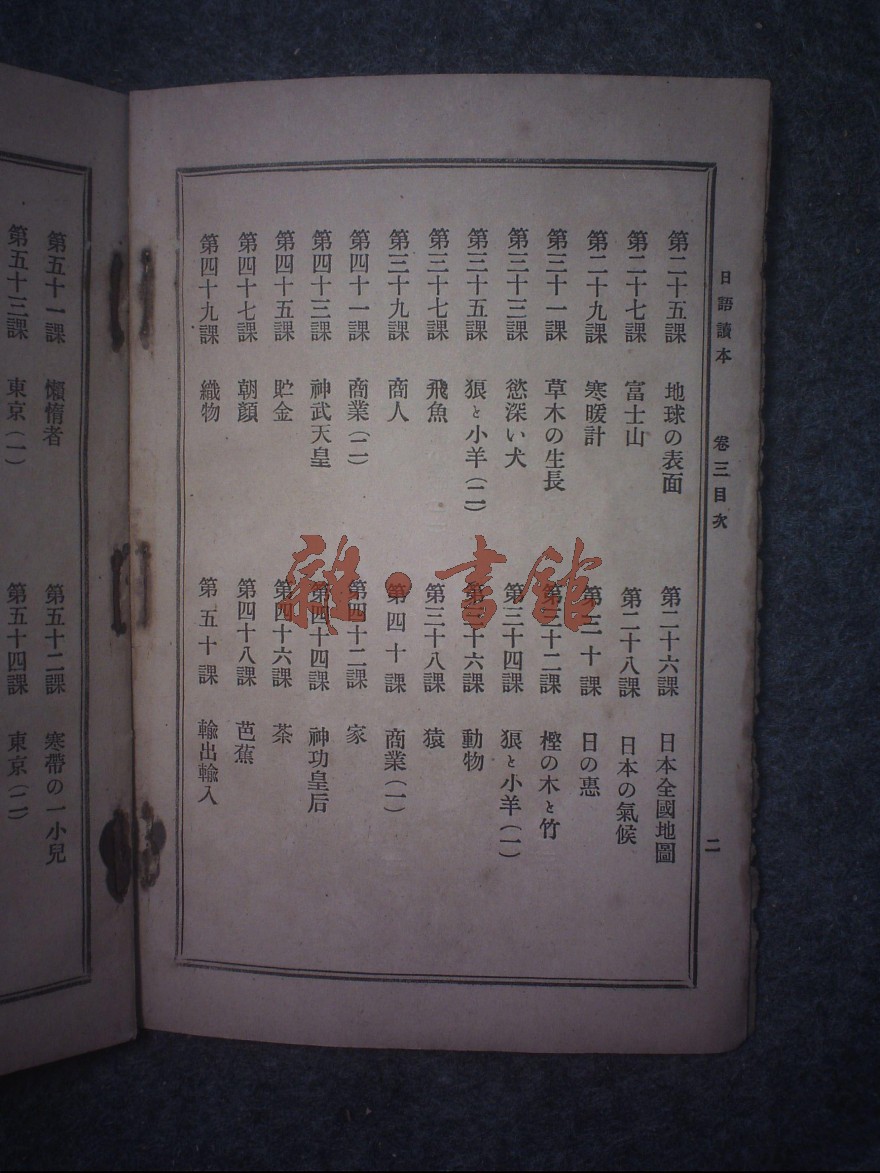 日語讀本 卷三目次 二
第二十五課 地球の表面 第二十六課 日本全國地圖
第二十七課 富士山 第二十八課 日本の氣候
第二十九課 寒暖計 第三十課 日の惠
第三十一課 草木の生長 第三十二課 樫の木と竹
第三十三課 慾深い犬 第三十四課 狼と小羊(一)
第三十五課 狼と小羊(二) 第三十六課 動物
第三十七課 飛魚 第三十八課 猿
第三十九課 商人 第四十課 商業(一)
第四十一課 商業(二) 第四十二課 家
第四十三課 神武天皇 第四十四課 神功皇后
第四十五課 貯金 第四十六課 茶
第四十七課 朝顏 第四十八課 芭蕉
第四十九課 織物 第五十課 輸出輸入
第五十一課 懶惰者 第五十二課 寒帶の一小兒
第五十三課 東京(一) 第五十四課 東京(二)
雜·書館